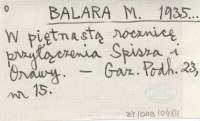 BALARA M. 1935...
W piętnastą rocznicę
przyłączenia Spisza i
Orawy. — Gaz. Podh. 23,
nr 15.